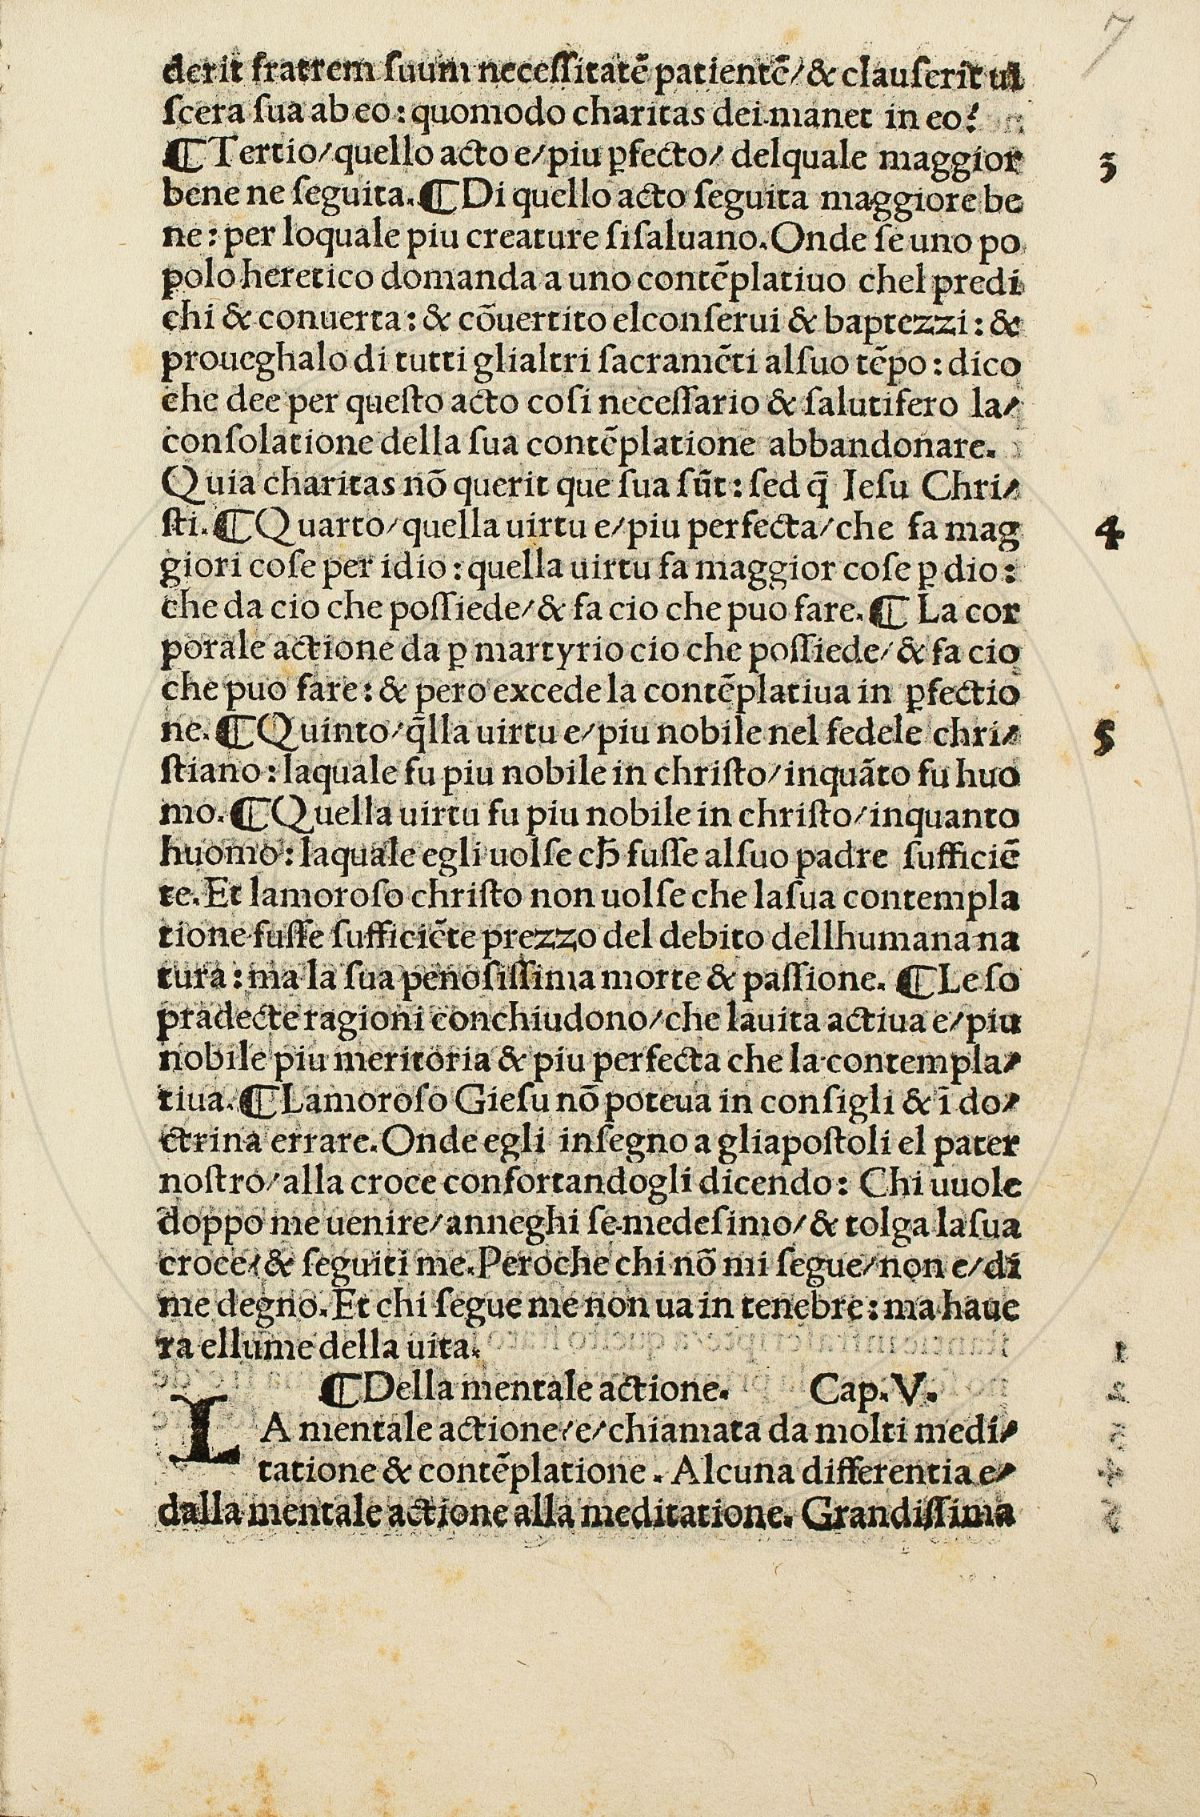 7
derit fratrem ſuum neceſſitatē patientē/& clauſerit ui
ſcera ſua ab eo: quomodo charitas dei manet in eo?
¶Tertio/quello acto e/piu ꝑfecto/ delquale maggior 3
bene ne ſeguita.¶Di quello acto ſeguita maggiore be
ne: per loquale piu creature ſi ſaluano.Onde ſe uno po
polo heretico domanda a uno contēplatiuo chel predi
chi & conuerta: & cōuertito elconſerui & baptezzi: &
proueghalo di tutti glialtri ſacramēti alſuo tēpo: dico
che dee per queſto acto coſi neceſſario & ſalutifero la/
conſolatione della ſua contēplatione abbandonare.
Quia charitas nō querit que ſua ſūt: ſed q̄ Ieſu Chri/
ſti.¶Quarto/quella uirtu e/piu perfecta/che fa mag 4
giori coſe per idio: quella uirtu fa maggior coſe ꝑ dio:
che da cio che poſſiede/& fa cio che puo fare.¶ La cor
porale actione da ꝑ martyrio cio che poſſiede/& fa cio
che puo fare: & pero excede la contēplatiua in ꝑfectio
ne.¶Quinto/q̄lla uirtu e/piu nobile nel fedele chri/ 5
ſtiano: laquale fu piu nobile in chriſto/inquāto fu huo
mo.¶Quella uirtu fu piu nobile in chriſto/inquanto
huomo: laquale egli uolſe cħ fuſſe alſuo padre ſufficiē
te.Et lamoroſo chriſto non uolſe che laſua contempla
tione fuſſe ſufficiēte prezzo del debito dellhumana na
tura: ma la ſua penoſiſſima morte & paſſione. ¶Le ſo
pradecte ragioni conchiudono/che lauita actiua e/piu
nobile piu meritoria & piu perfecta che la contempla/
tiua.¶Lamoroſo Gieſu nō poteua in conſigli & ī do/
ctrina errare.Onde egli inſegno a gliapoſtoli el pater
noſtro/alla croce confortandogli dicendo: Chi uuole
doppo me uenire/anneghi ſe medeſimo/& tolga laſua
croce/& ſeguiti me.Peroche chi nō mi ſegue/non e/di
me degno.Et chi ſegue me non ua in tenebre: ma haue
ra ellume della uita.
¶Della mentale actione. Cap.V.
LA mentale actione/e/chiamata da molti medi/
tatione & contēplatione. Alcuna differentia e/
dalla mentale actione alla meditatione. Grandiſſima